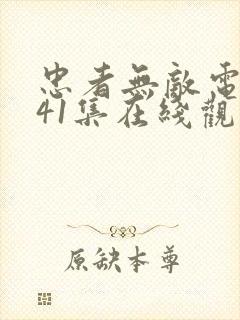 忠者無敵電
41集在綫觀
原缺本尊